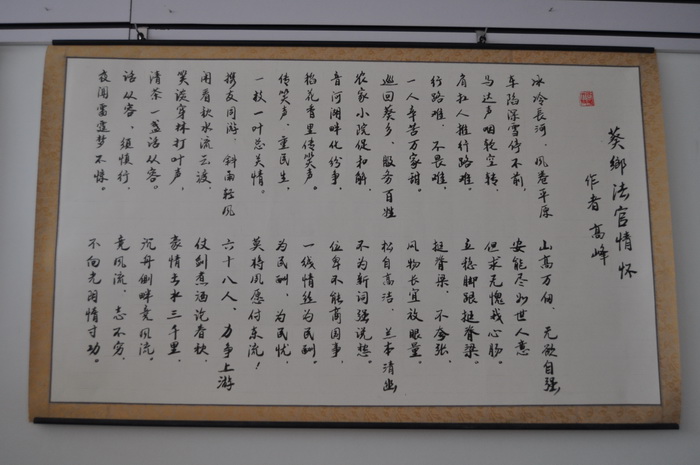 葵鄉法官情怀
作者 高峰
冰冷長河，風卷平原
车陷深雪停不前，
马达声咽轮空转，
肩扛人推行路难。
行路难，不畏难，
一人辛苦万家甜。
巡回葵乡，服务百姓
农家小院促和解，
音河湖畔化纷争，
稻花香里传笑声。
传笑声，重民生，
一枝一叶总关情。
携友同游，斜雨轻风
闲看秋水流云渡，
笑谈穿林打叶声，
清茶一盏话从容。
话从容，慎行，
夜闻雷霆梦不惊。
山高万仞，无欲自强
安能尽如世人意
但求无愧我心肠。
立稳脚跟挺脊梁。
挺脊梁，不夸张，
风物长宜放眼量。
松自高洁，兰本清幽
不为新词强说愁。
位卑不能离国事，
一线情丝为民酬。
为民酬，为民忧，
莫将风愿付东流！
六十八人，力争上游
仗剑煮酒论春秋，
豪情击水三千里，
沉舟侧畔竞风流。
竞风流，志不穷，
不向光阴惰寸功。